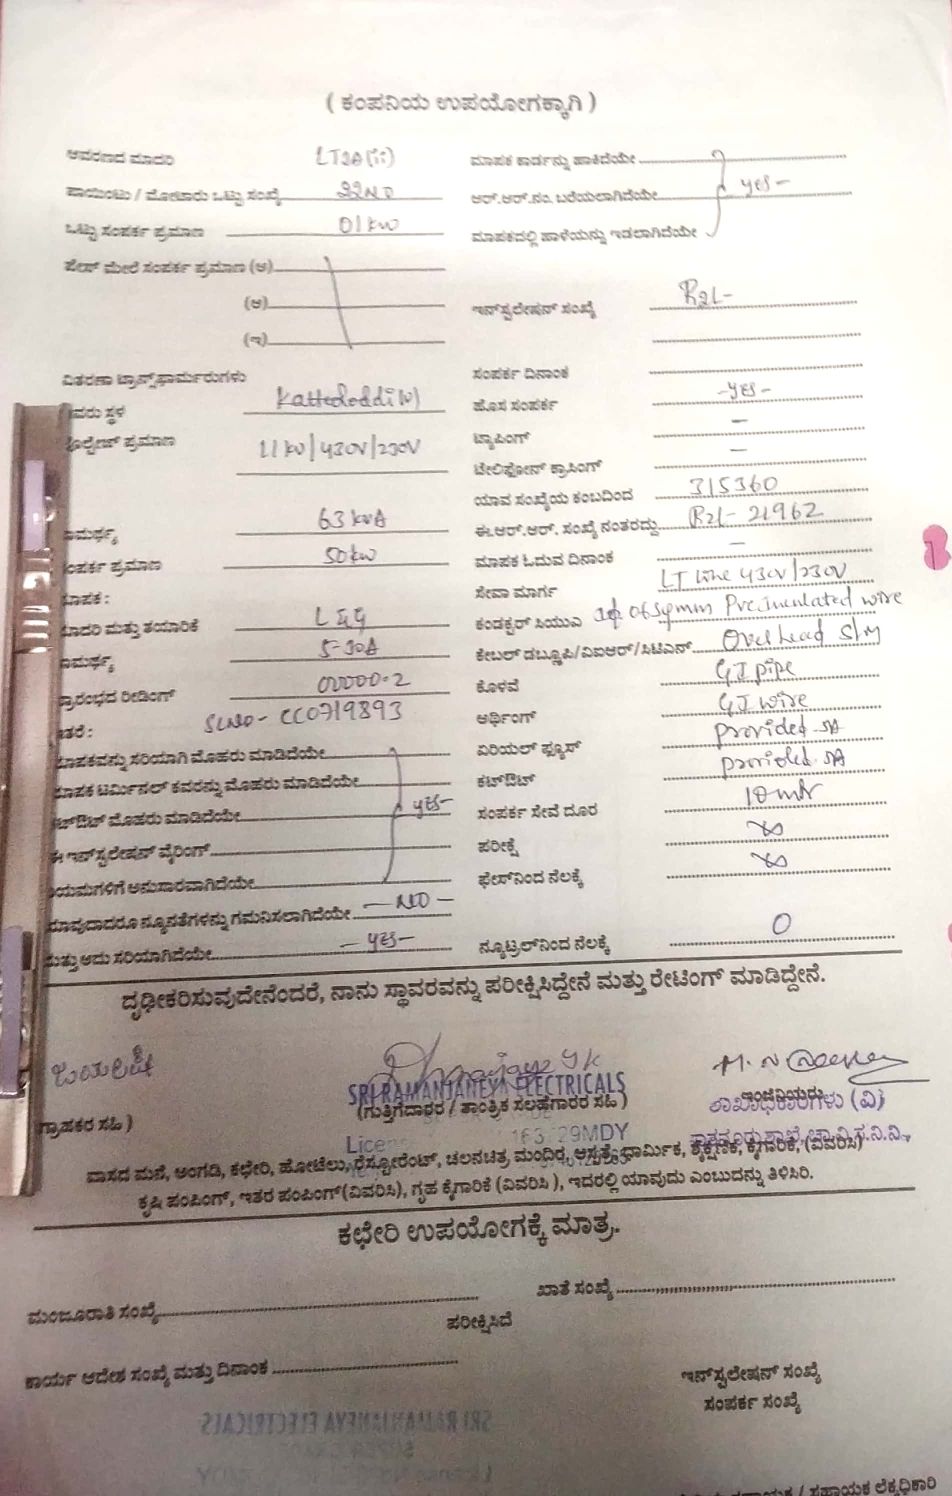 ( ಕಂಪನಿಯ ಉಪಯೋಗಕ್ಕಾಗಿ )
ಆವರಣದ ಮಾದರಿ LT2A(ii)
ಪಾಯಿಂಟು / ಮೋಟಾರು ಒಟ್ಟು ಸಂಖ್ಯೆ 22NO
ಒಟ್ಟು ಸಂಪರ್ಕ ಪ್ರಮಾಣ 01kw
ಫೇಸ್ ಮೇಲೆ ಸಂಪರ್ಕ ಪ್ರಮಾಣ (ಅ)
(ಆ)
(ಇ)
ವಿತರಣಾ ಟ್ರಾನ್ಸ್‌ಫಾರ್ಮರುಗಳು
ಸ್ಥಳ Kattedoddi(v)
ಪ್ರಮಾಣ 11kv/430V/230V
63kvA
ಪ್ರಮಾಣ 50kw
ಮತ್ತು ತಯಾರಿಕೆ L&G
5-30A
ರೀಡಿಂಗ್ 00000.2
SLNO- CC0719893
ಸರಿಯಾಗಿ ಮೊಹರು ಮಾಡಿದೆಯೇ
ಟರ್ಮಿನಲ್ ಕವರನ್ನು ಮೊಹರು ಮಾಡಿದೆಯೇ
ಮೊಹರು ಮಾಡಿದೆಯೇ yes-
ಇನ್‌ಸ್ಟಲೇಷನ್ ವೈರಿಂಗ್
ಅನುಸಾರವಾಗಿದೆಯೇ
ನ್ಯೂನತೆಗಳನ್ನು ಗಮನಿಸಲಾಗಿದೆಯೇ - NO -
ಅದು ಸರಿಯಾಗಿದೆಯೇ - yes -
ಮಾಪಕ ಕಾರ್ಡನ್ನು ಹಾಕಿದೆಯೇ
ಆರ್.ಆರ್.ನಂ. ಬರೆಯಲಾಗಿದೆಯೇ yes -
ಮಾಪಕದಲ್ಲಿ ಹಾಳೆಯನ್ನು ಇಡಲಾಗಿದೆಯೇ
ಇನ್‌ಸ್ಟಲೇಷನ್ ಸಂಖ್ಯೆ R2L-
ಸಂಪರ್ಕ ದಿನಾಂಕ
ಹೊಸ ಸಂಪರ್ಕ -yes-
ಟ್ಯಾಪಿಂಗ್ -
ಟೆಲಿಫೋನ್ ಕ್ರಾಸಿಂಗ್ -
ಯಾವ ಸಂಖ್ಯೆಯ ಕಂಬದಿಂದ 315360
ಈ.ಆರ್.ಆರ್. ಸಂಖ್ಯೆ ನಂತರದ್ದು R2L- 21962
ಮಾಪಕ ಓದುವ ದಿನಾಂಕ -
ಸೇವಾ ಮಾರ್ಗ LT line 430V/230V
ಕಂಡಕ್ಟರ್ ಸಿಯುಎ wire
ಕೇಬಲ್ ಡಬ್ಲೂಪಿ/ವಿಐಆರ್/ಸಿಟಿಎಸ್ Over head S/M
ಕೊಳವೆ GI pipe
ಅರ್ಥಿಂಗ್ GI wire
ಏರಿಯಲ್ ಫ್ಯೂಸ್ provided 5A
ಕಟ್‌ಔಟ್ provided 5A
ಸಂಪರ್ಕ ಸೇವೆ ದೂರ 10 mtr
ಪರೀಕ್ಷೆ ∞
ಫೇಸ್‌ನಿಂದ ನೆಲಕ್ಕೆ ∞
ನ್ಯೂಟ್ರಲ್‌ನಿಂದ ನೆಲಕ್ಕೆ 0
ದೃಢೀಕರಿಸುವುದೇನೆಂದರೆ, ನಾನು ಸ್ಥಾವರವನ್ನು ಪರೀಕ್ಷಿಸಿದ್ದೇನೆ ಮತ್ತು ರೇಟಿಂಗ್ ಮಾಡಿದ್ದೇನೆ.
SRI RAMANJANEYA ELECTRICALS
(ಗುತ್ತಿಗೆದಾರರ / ತಾಂತ್ರಿಕ ಸಲಹೆಗಾರರ ಸಹಿ )
ಇಂಜಿನಿಯರು
ಶಾಖಾಧಿಕಾರಿಗಳು (ವಿ)
ಗ್ರಾಹಕರ ಸಹಿ )
ವಾಸದ ಮನೆ, ಅಂಗಡಿ, ಕಛೇರಿ, ಹೋಟೆಲು, ರೆಸ್ಟೋರೆಂಟ್, ಚಲನಚಿತ್ರ ಮಂದಿರ, ಆಸ್ಪತ್ರೆ, ಧಾರ್ಮಿಕ, ಶೈಕ್ಷಣಿಕ, ಕೈಗಾರಿಕೆ, (ವಿವರಿಸಿ)
ಕೃಷಿ ಪಂಪಿಂಗ್, ಇತರ ಪಂಪಿಂಗ್(ವಿವರಿಸಿ), ಗೃಹ ಕೈಗಾರಿಕೆ (ವಿವರಿಸಿ ), ಇದರಲ್ಲಿ ಯಾವುದು ಎಂಬುದನ್ನು ತಿಳಿಸಿರಿ.
ಕಛೇರಿ ಉಪಯೋಗಕ್ಕೆ ಮಾತ್ರ.
ಮಂಜೂರಾತಿ ಸಂಖ್ಯೆ
ಖಾತೆ ಸಂಖ್ಯೆ
ಪರೀಕ್ಷಿಸಿದೆ
ಕಾರ್ಯ ಆದೇಶ ಸಂಖ್ಯೆ ಮತ್ತು ದಿನಾಂಕ
ಇನ್‌ಸ್ಟಲೇಷನ್ ಸಂಖ್ಯೆ
ಸಂಪರ್ಕ ಸಂಖ್ಯೆ
/ ಸಹಾಯಕ ಲೆಕ್ಕಧಿಕಾರಿ